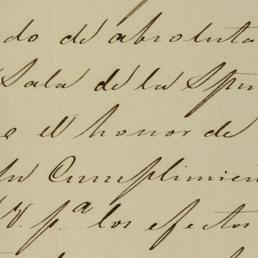 do de absoluta
Sala de la
e el honor de
Cumplimien
V. p.ª los efectos